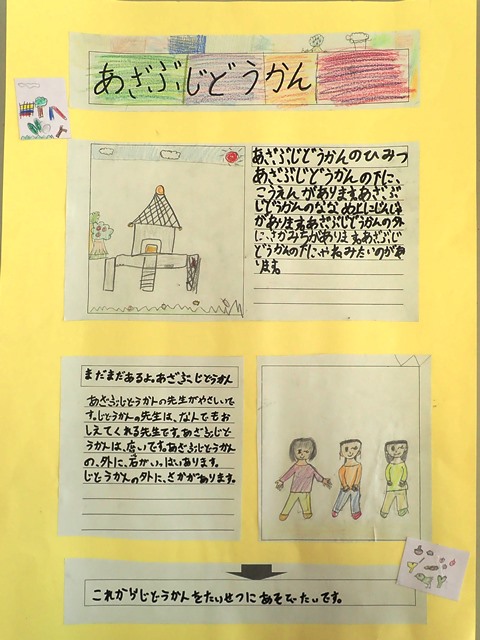 あざぶじどうかん
あざぶじどうかんのひみつ
あざぶじどうかんの下に、
こうえんがあります。あざぶ
じどうかんのなか
があります。あざぶじどうかんの外
に、さかみちがあります。あざぶじ
どうかんの下に、やねみたいのがあ
ります。
まだまだあるよ。あざぶじどうかん
あざぶじどうかんの先生がやさしいで
す。じどうかんの先生は、なんでもお
しえてくれる先生です。あざぶじど
うかんは、広いです。あざぶじどうかん
の、外に、石がいっぱいあります。
じどうかんの外に、さかがあります。
これからじどうかんをたいせつにあそびたいです。